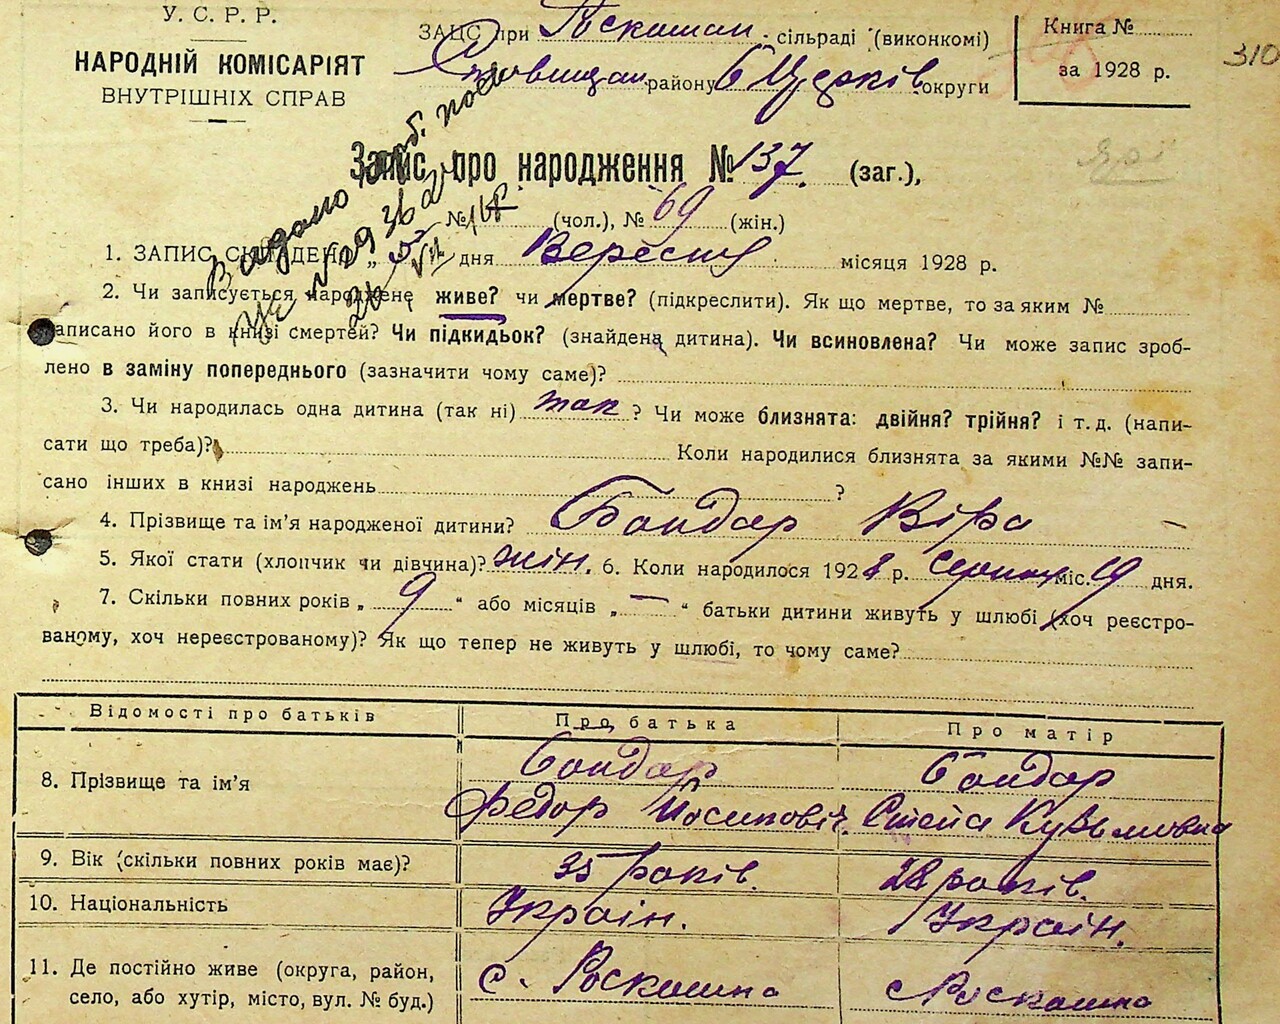 У. С. Р. Р.
НАРОДНІЙ КОМІСАРІЯТ
ВНУТРІШНІХ СПРАВ
ЗАЦС при Роскошан. сільраді (виконкомі)
Ставищан району БЦерків округи
Книга №
за 1928 р.
310
Запис про народження № 137. (заг.),
№ (чол.), № 69 (жін.)
Видано
1. ЗАПИС СКЛАДЕНО „ 5 дня Вересня місяця 1928 р.
2. Чи записується народжене живе? чи мертве? (підкреслити). Як що мертве, то за яким №
записано його в книзі смертей? Чи підкидьок? (знайдена дитина). Чи всиновлена? Чи може запис зроб-
лено в заміну попереднього (зазначити чому саме)?
3. Чи народилась одна дитина (так ні) так ? Чи може близнята: двійня? трійня? і т. д. (напи-
сати що треба)? Коли народилися близнята за якими №№ запи-
сано інших в книзі народжень ?
4. Прізвище та ім'я народженої дитини? Бондар Віра
5. Якої стати (хлопчик чи дівчина)? жін. 6. Коли народилося 1928 р. Серпня міс. 19 дня.
7. Скільки повних років „ 9 “ або місяців „ — “ батьки дитини живуть у шлюбі (хоч реєстро-
ваному, хоч нереєстрованому)? Як що тепер не живуть у шлюбі, то чому саме?
Відомості про батьків Про батька Про матір
8. Прізвище та ім'я Бондар Федор Йосипович. Бондар Степа Кузьмовна
9. Вік (скільки повних років має)? 35 років. 28 років.
10. Національність Україн. Україн.
11. Де постійно живе (округа, район,
село, або хутір, місто, вул. № буд.) с. Роскошна с Роскошна